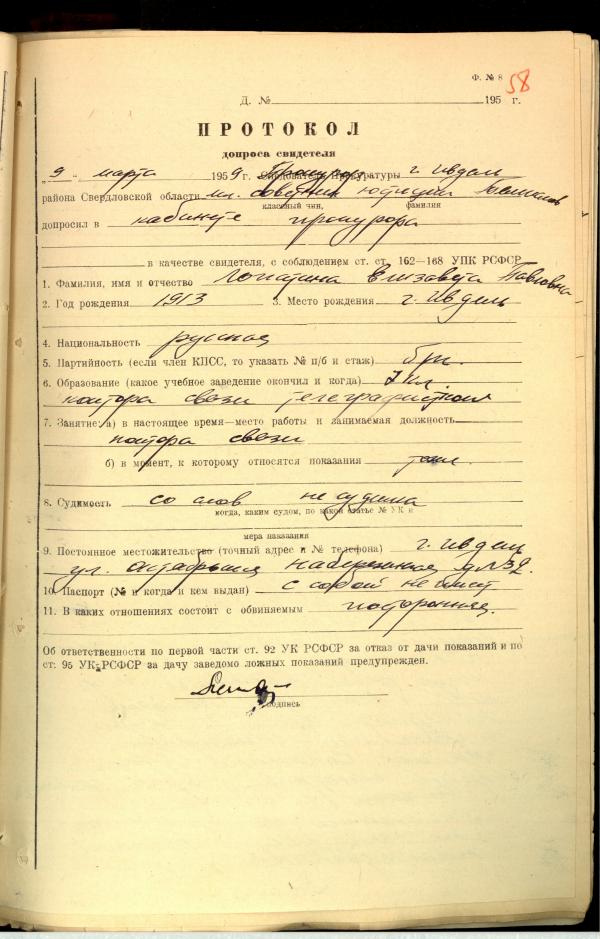 Ф. № 8
58
Д. № 195 г.
ПРОТОКОЛ
допроса свидетеля
„9„ марта 1959 г. Прокурор Следователь Прокуратуры г. Ивдель
района Свердловской области мл. советник юстиции
классный чин, фамилия
допросил в кабинете прокурора
в качестве свидетеля, с соблюдением ст. ст. 162—168 УПК РСФСР
1. Фамилия, имя и отчество Лопатина Елизавета Павловна
2. Год рождения 1913 3. Место рождения г. Ивдель
4. Национальность русская
5. Партийность (если член КПСС, то указать № п/б и стаж) б/п.
6. Образование (какое учебное заведение окончил и когда) 7 кл.
контора связи телеграфисткой
7. Занятие: а) в настоящее время—место работы и занимаемая должность
контора связи
б) в момент, к которому относятся показания
8. Судимость со слов не судима
когда, каким судом, по какой статье № УК и
мера наказания
9. Постоянное местожительство (точный адрес и № телефона) г. Ивдель
ул. Октябрьская набережная д № 32.
10. Паспорт (№ и когда и кем выдан) с собой не имеет
11. В каких отношениях состоит с обвиняемым посторонняя.
Об ответственности по первой части ст. 92 УК РСФСР за отказ от дачи показаний и по
ст. 95 УК РСФСР за дачу заведомо ложных показаний предупрежден.
подпись